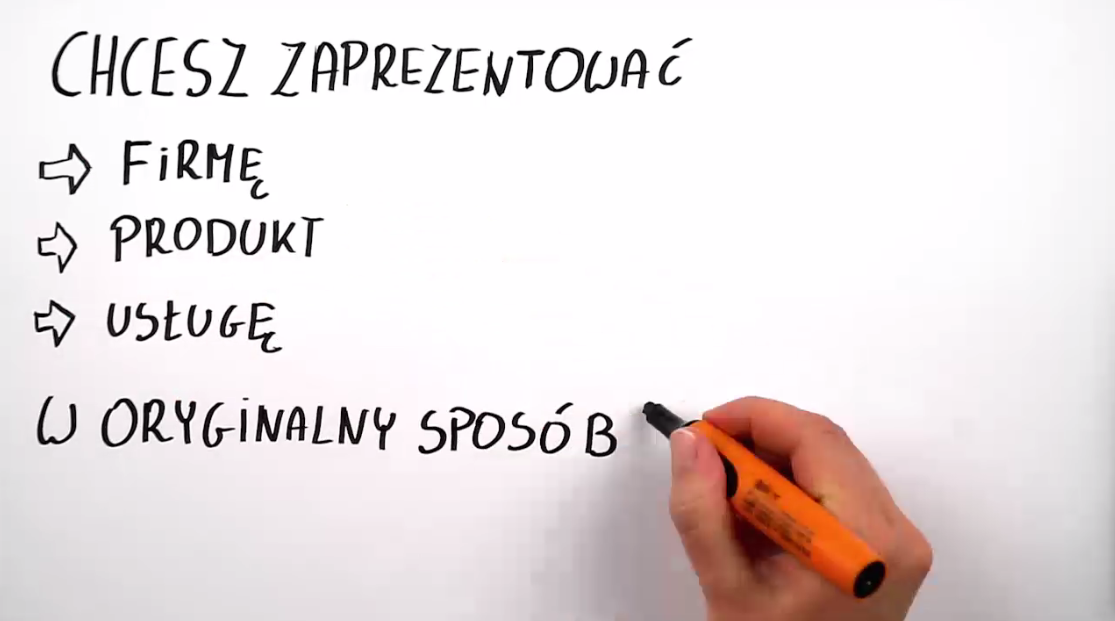 CHCESZ ZAPREZENTOWAĆ
⇨ FiRMĘ
⇨ PRODUKT
⇨ USŁUGĘ
W ORYGiNALNY SPOSÓB